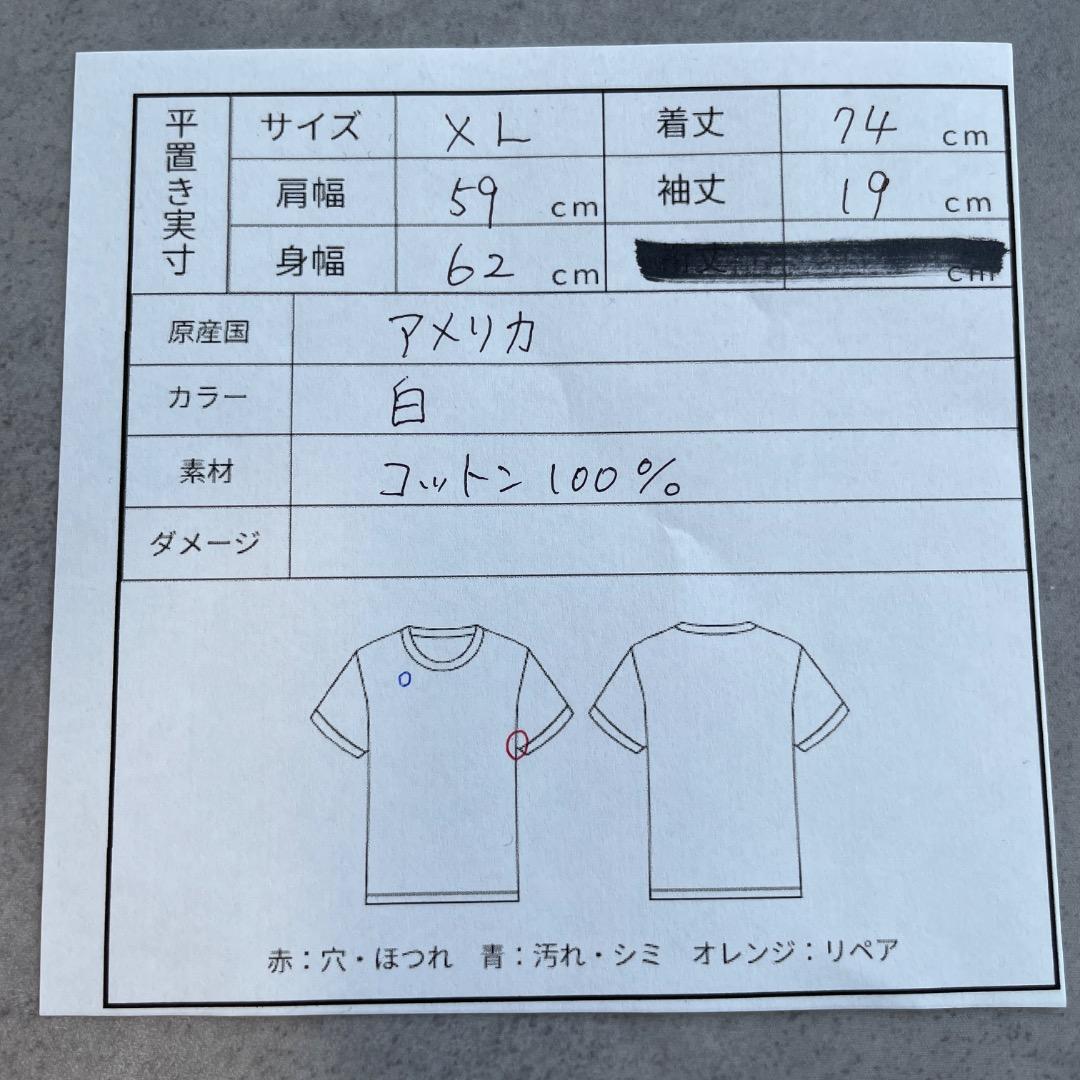 平置き実寸
サイズ XL 着丈 74 cm
肩幅 59 cm 袖丈 19 cm
身幅 62 cm 丈 cm
原産国 アメリカ
カラー 白
素材 コットン 100%
ダメージ
赤：穴・ほつれ 青：汚れ・シミ オレンジ：リペア